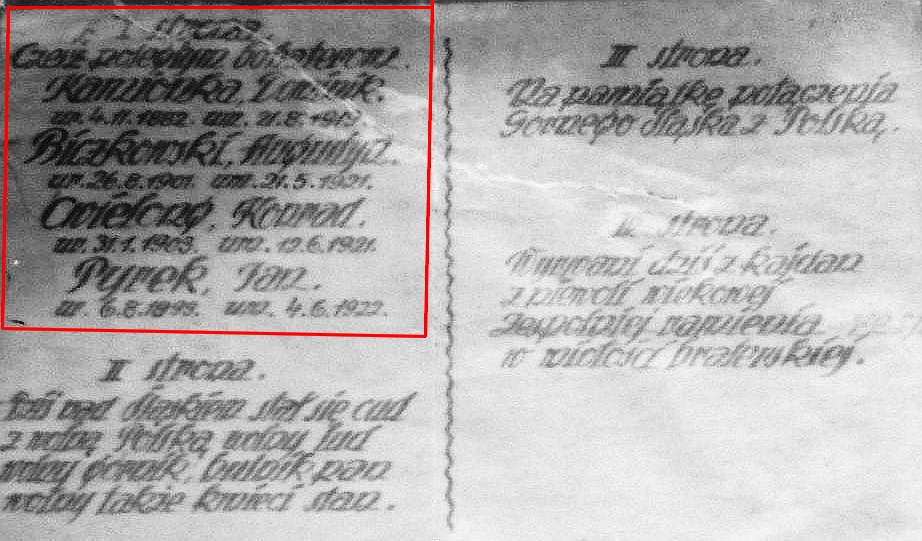 I strona.
Cześć poległym bohaterom.
Kamionka, Dominik.
ur. 4.11.1882. um. 21.8.1919.
Biczkowski, Augustyn.
ur. 26.8.1901. um. 21.5.1921.
Cwielong, Konrad.
ur. 31.1.1903. um. 12.6.1921.
Pyrek, Jan.
ur. 6.8.1899. um. 4.6.1922.
II strona.
Dziś nad śląskiem stał się cud
z wolną Polską wolny lud
wolny górnik, hutnik pan
wolny także kmieci stan.
III strona.
Na pamiątkę połączenia
Górnego śląska z Polską.
strona.
Wyrwani dziś z kajdan
z niewoli wiekowej
zespolmy ramienia
w miłości braterskiej.